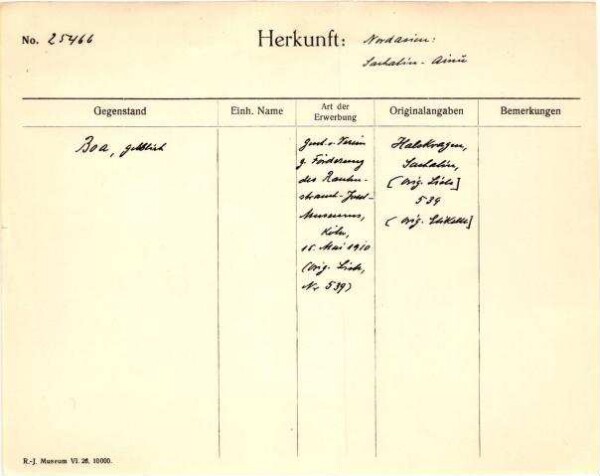 No. 25466
Herkunft: Nordasien:
Sachalin - Ainu
Gegenstand
Einh. Name
Art der
Erwerbung
Originalangaben
Bemerkungen
Boa, gelblich
v. Verein
z. Förderung
des Rauten-
strauch-Joest-
Museums,
Köln,
15. Mai 1910
(Orig. Liste,
Nr 539)
Halskragen,
Sachalin,
(Orig. Liste]
539
(Orig. Etikette]
R.-J. Museum VI. 26. 10000.